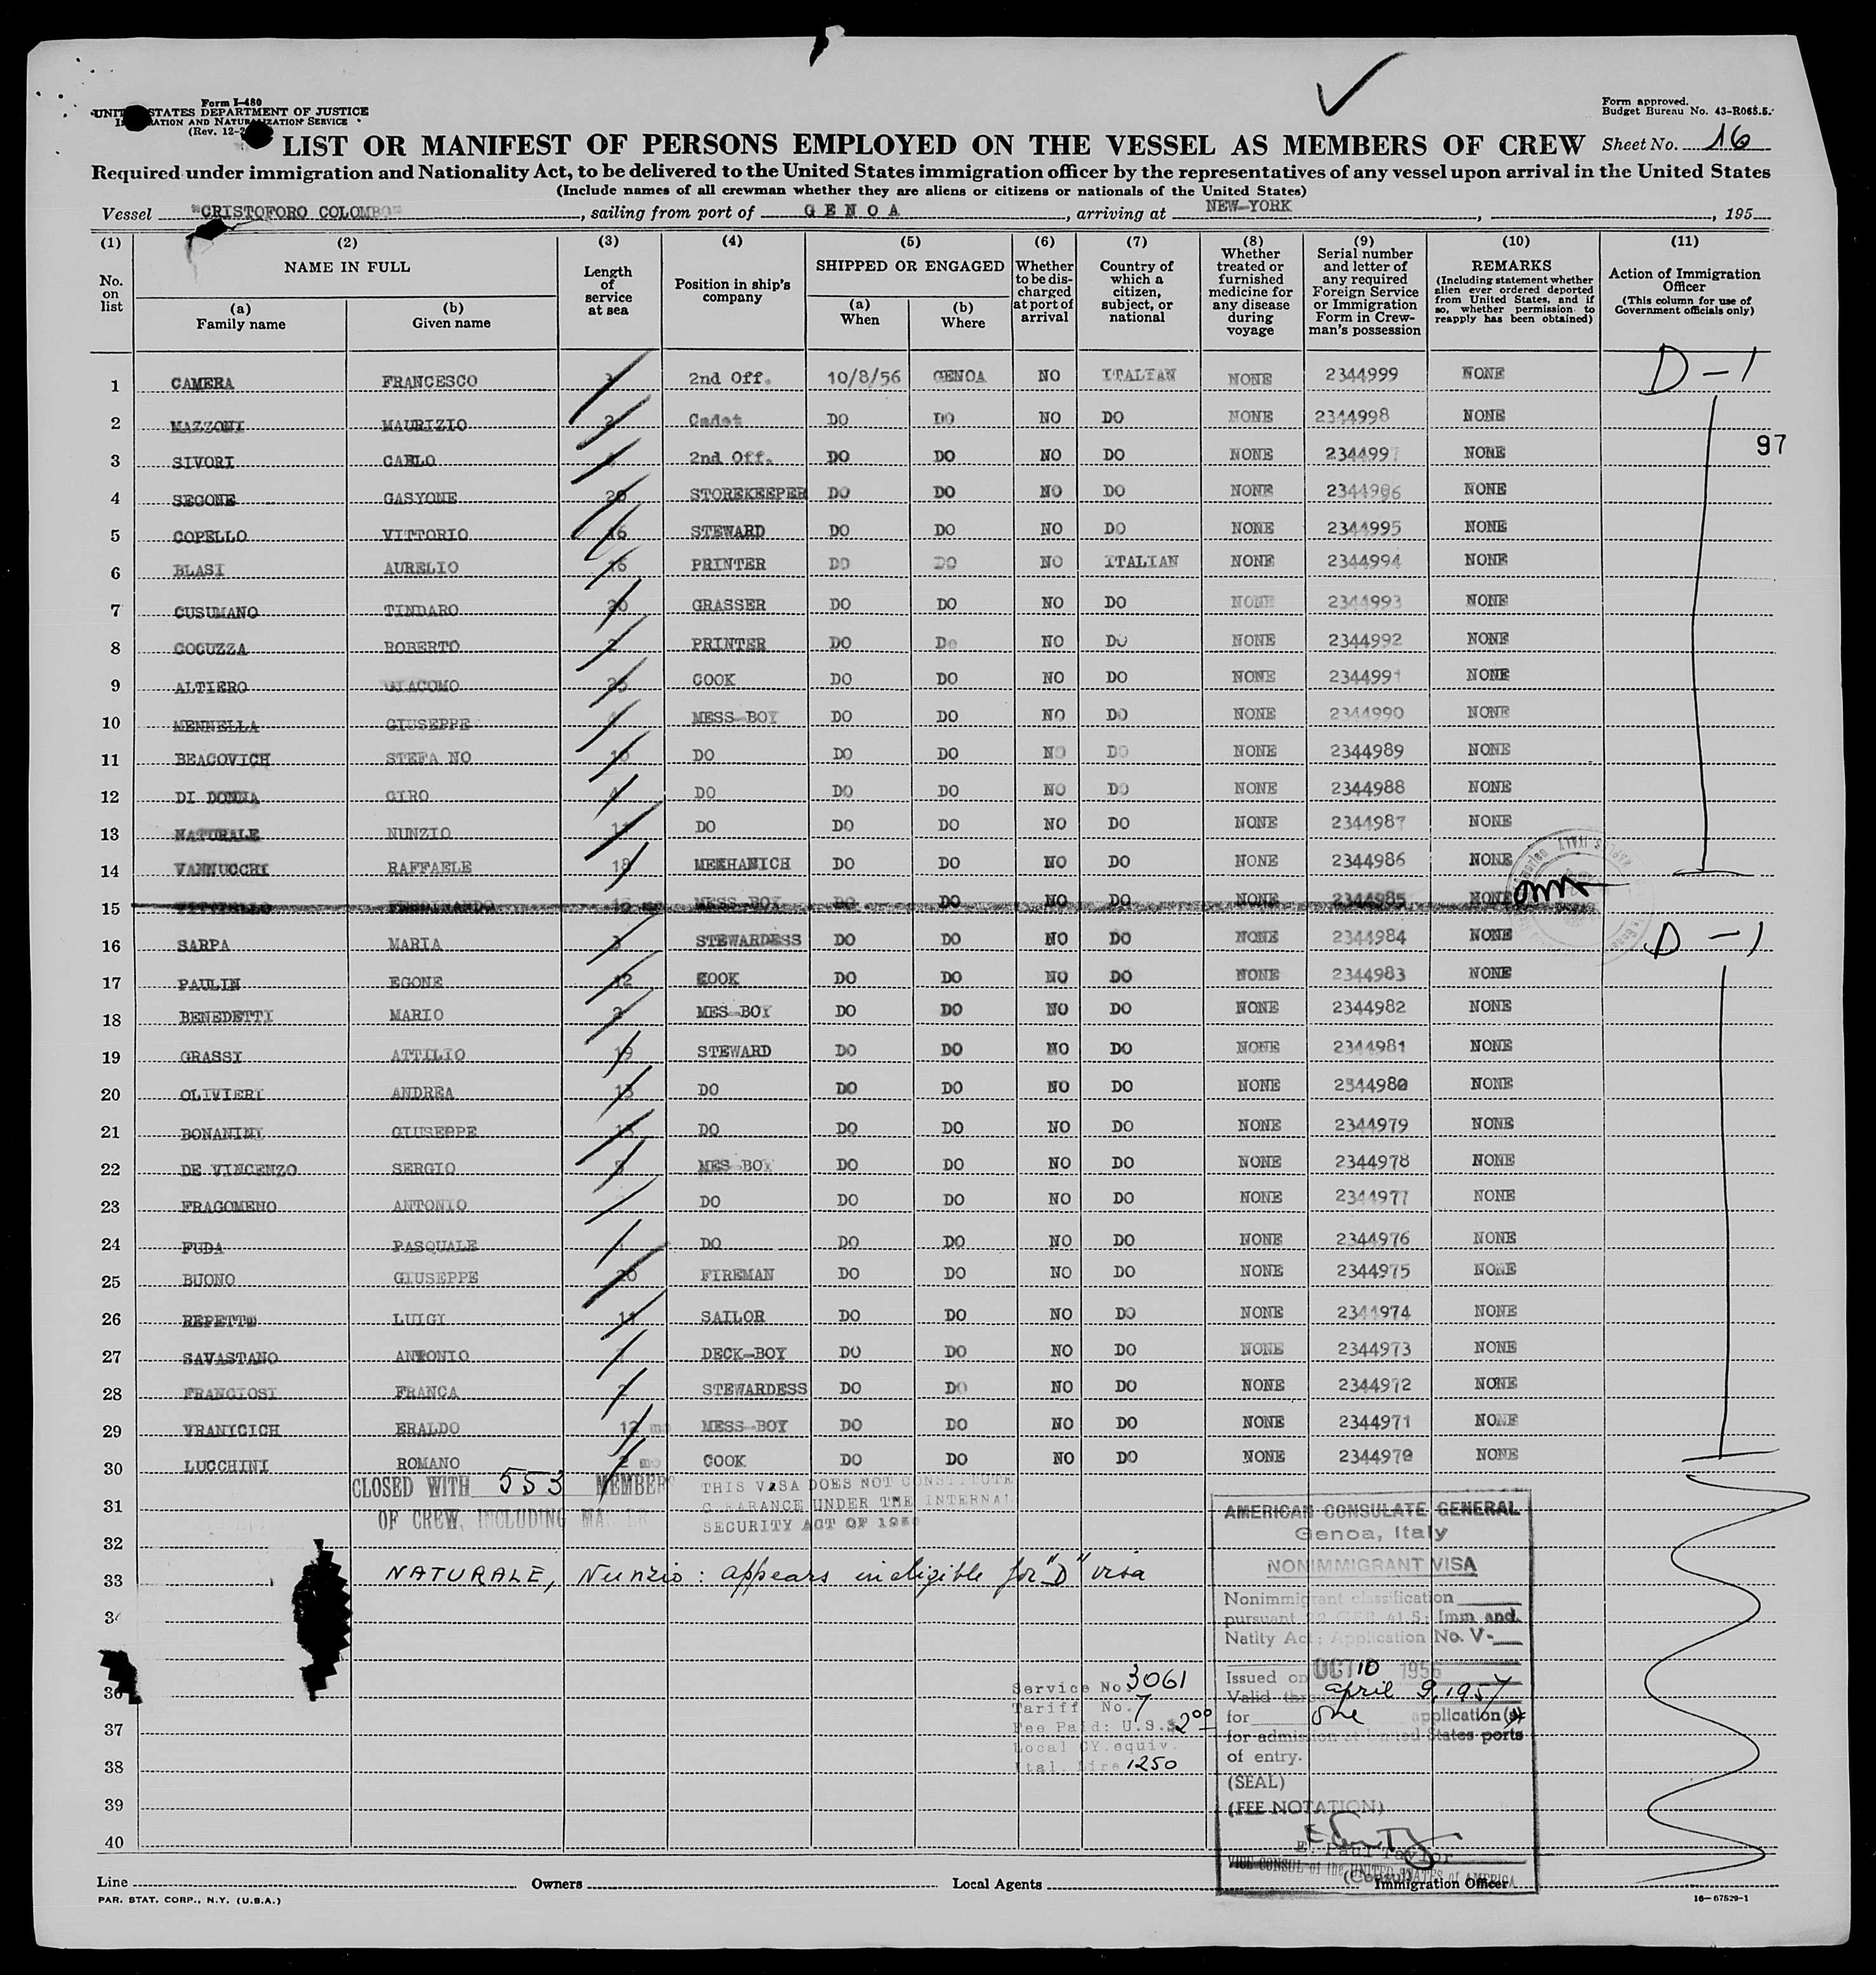 Form I-480
UNITED STATES DEPARTMENT OF JUSTICE
IMMIGRATION AND NATURALIZATION SERVICE
(Rev. 12-2
Form approved.
Budget Bureau No. 43-R065.5.
LIST OR MANIFEST OF PERSONS EMPLOYED ON THE VESSEL AS MEMBERS OF CREW Sheet No. 16
Required under immigration and Nationality Act, to be delivered to the United States immigration officer by the representatives of any vessel upon arrival in the United States
(Include names of all crewman whether they are aliens or citizens or nationals of the United States)
Vessel "CRISTOFORO COLOMBO", sailing from port of GENOA, arriving at NEW-YORK, , 195
(1) No. on list
(2) NAME IN FULL
(a) Family name
(b) Given name
(3) Length of service at sea
(4) Position in ship's company
(5) SHIPPED OR ENGAGED
(a) When
(b) Where
(6) Whether to be discharged at port of arrival
(7) Country of which a citizen, subject, or national
(8) Whether treated or furnished medicine for any disease during voyage
(9) Serial number and letter of any required Foreign Service or Immigration Form in Crewman's possession
(10) REMARKS (Including statement whether alien ever ordered deported from United States, and if so, whether permission to reapply has been obtained)
(11) Action of Immigration Officer (This column for use of Government officials only)
1 CAMERA FRANCESCO 2nd Off. 10/8/56 GENOA NO ITALIAN NONE 2344999 NONE D-1
2 MAZZONI MAURIZIO 2 Cadet DO DO NO DO NONE 2344998 NONE
97
3 SIVORI CARLO 2nd Off. DO DO NO DO NONE 2344997 NONE
4 SEGONE GASYONE 20 STOREKEEPER DO DO NO DO NONE 2344996 NONE
5 COPELLO VITTORIO 16 STEWARD DO DO NO DO NONE 2344995 NONE
6 BLASI AURELIO 16 PRINTER DO DO NO ITALIAN NONE 2344994 NONE
7 CUSUMANO TINDARO 20 GRASSER DO DO NO DO NONE 2344993 NONE
8 COCUZZA ROBERTO 2 PRINTER DO Do NO DO NONE 2344992 NONE
9 ALTIERO GIACOMO 25 COOK DO DO NO DO NONE 2344991 NONE
10 MENNELLA GIUSEPPE MESS BOY DO DO NO DO NONE 2344990 NONE
11 BEACOVICH STEFA NO 10 DO DO DO NO DO NONE 2344989 NONE
12 DI DONNA CIRO 4 DO DO DO NO DO NONE 2344988 NONE
13 NATURALE NUNZIO 11 DO DO DO NO DO NONE 2344987 NONE
14 VANNUCCHI RAFFAELE 18 MEKHANICH DO DO NO DO NONE 2344986 NONE
15 VITTIELLO FERDINANDO MESS BOY DO DO NO DO NONE 2344985 NONE
16 SARPA MARIA 3 STEWARDESS DO DO NO DO NONE 2344984 NONE D-1
17 PAULIN EGONE 12 COOK DO DO NO DO NONE 2344983 NONE
18 BENEDETTI MARIO 2 MES BOY DO DO NO DO NONE 2344982 NONE
19 GRASSI ATTILIO 19 STEWARD DO DO NO DO NONE 2344981 NONE
20 OLIVIERI ANDREA 13 DO DO DO NO DO NONE 2344980 NONE
21 BONANINI GIUSEPPE 13 DO DO DO NO DO NONE 2344979 NONE
22 DE VINCENZO SERGIO MES BOY DO DO NO DO NONE 2344978 NONE
23 FRAGOMENO ANTONIO DO DO DO NO DO NONE 2344977 NONE
24 FUDA PASQUALE DO DO DO NO DO NONE 2344976 NONE
25 BUONO GIUSEPPE 20 FIREMAN DO DO NO DO NONE 2344975 NONE
26 REPETTO LUIGI 11 SAILOR DO DO NO DO NONE 2344974 NONE
27 SAVASTANO ANTONIO DECK-BOY DO DO NO DO NONE 2344973 NONE
28 FRANCIOSI FRANCA 7 STEWARDESS DO DO NO DO NONE 2344972 NONE
29 VRANICICH ERALDO 12 mo MESS BOY DO DO NO DO NONE 2344971 NONE
30 LUCCHINI ROMANO 2 mo COOK DO DO NO DO NONE 2344970 NONE
CLOSED WITH 553 MEMBERS
OF CREW, INCLUDING MASTER
THIS VISA DOES NOT CONSTITUTE
CLEARANCE UNDER THE INTERNAL
SECURITY ACT OF 1950
31
32
33 NATURALE, Nunzio: appears ineligible for "D" visa
34
36
37
38
39
40
Service No. 3061
Tariff No. 7
Fee Paid: U.S.$ 2.00
Local CY. equiv.
Ital. Lire 1250
AMERICAN CONSULATE GENERAL
Genoa, Italy
NONIMMIGRANT VISA
Nonimmigrant classification
pursuant 22 CFR 41.5; Imm and.
Natlty Act; Application No. V-
Issued on OCT 10 1956
Valid through April 9, 1957
for One application(s)
for admission at United States ports
of entry.
(SEAL)
(FEE NOTATION)
E. Paul Taylor
VICE CONSUL of the UNITED STATES of AMERICA
(Consul)
Line Owners Local Agents Immigration Officer
PAR. STAT. CORP., N.Y. (U.S.A.)
16-67529-1